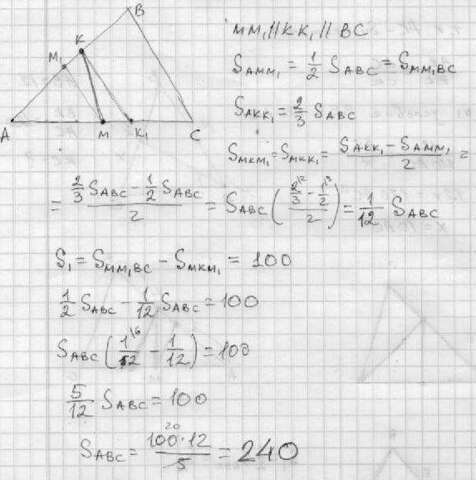 B
K
M₁
A
M
K₁
C
MM₁ || KK₁ || BC
S_AMM₁ = 1/2 S_ABC = S_MM₁BC
S_AKK₁ = 2/3 S_ABC
S_MKM₁ = S_MKK₁ = (S_AKK₁ - S_AMM₁)/2 =
= (2/3 S_ABC - 1/2 S_ABC)/2 = S_ABC ((2/3 - 1/2)/2) = 1/12 S_ABC
S₁ = S_MM₁BC - S_MKM₁ = 100
1/2 S_ABC - 1/12 S_ABC = 100
S_ABC (1/2 - 1/12) = 100
5/12 S_ABC = 100
S_ABC = (100·12)/5 = 240